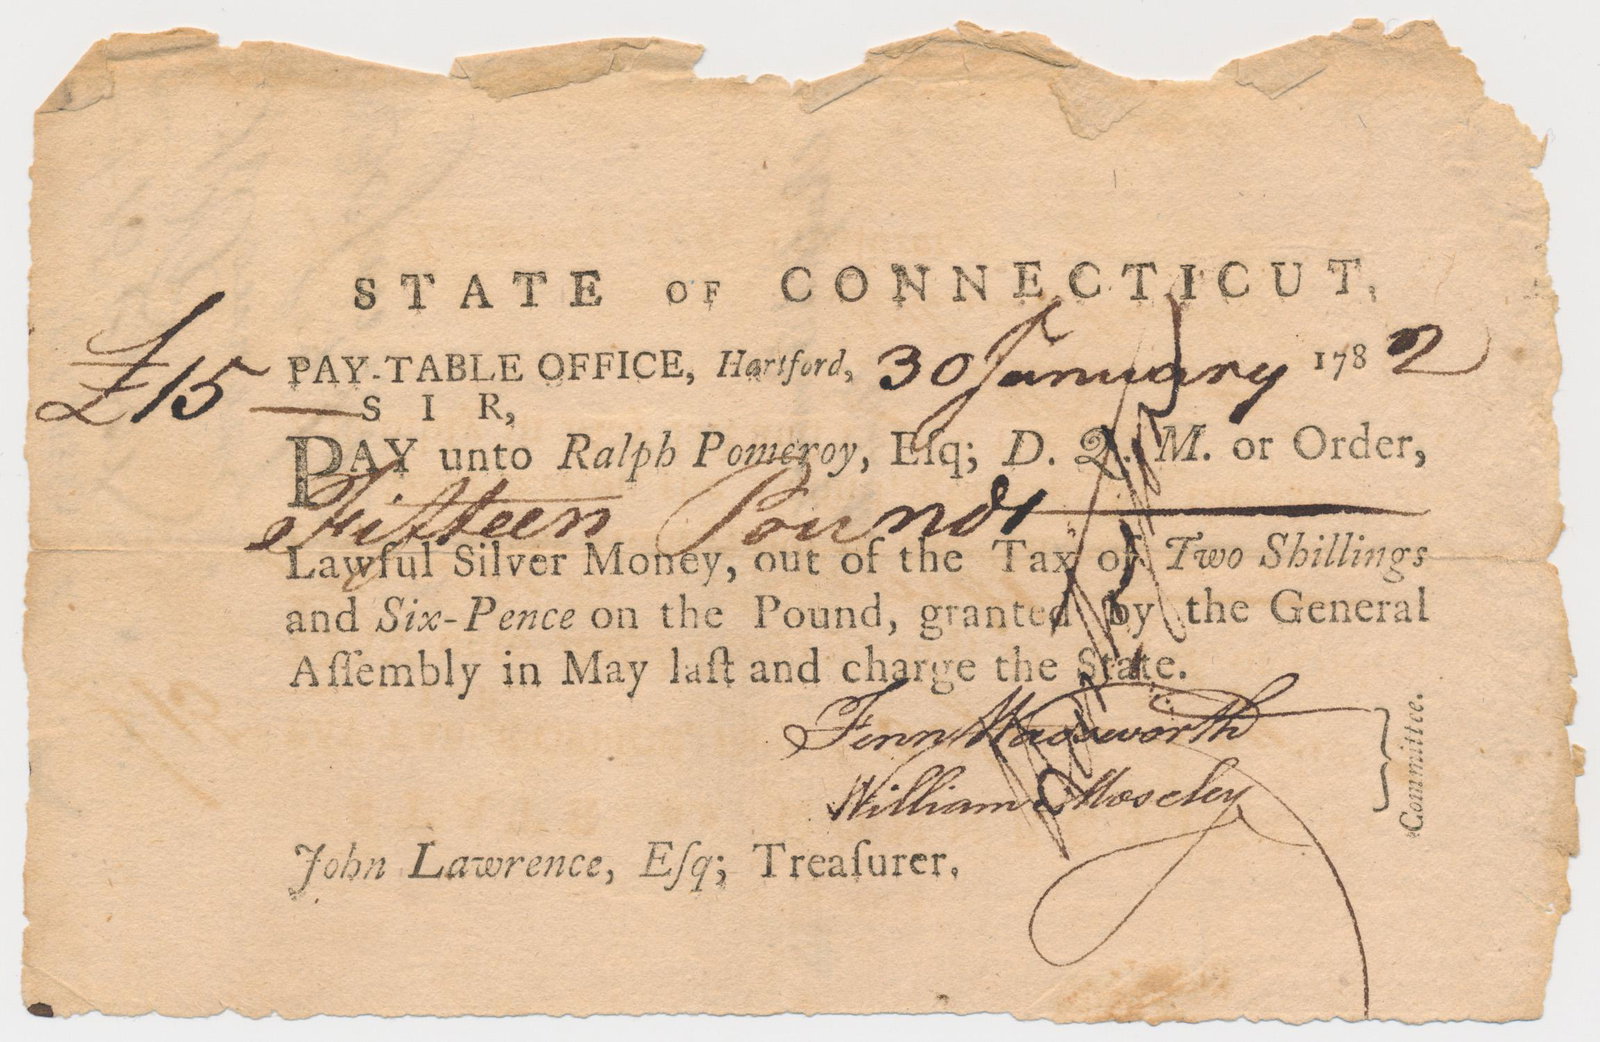 STATE OF CONNECTICUT.
£15 PAY-TABLE OFFICE, Hartford, 30 January 1782
SIR,
PAY unto Ralph Pomeroy, Eſq; D. Q. M. or Order,
Fifteen Pounds
Lawful Silver Money, out of the Tax of Two Shillings
and Six-Pence on the Pound, granted by the General
Aſſembly in May laſt and charge the State.
Fenn Wadsworth
William Moseley
Committee.
John Lawrence, Eſq; Treaſurer.